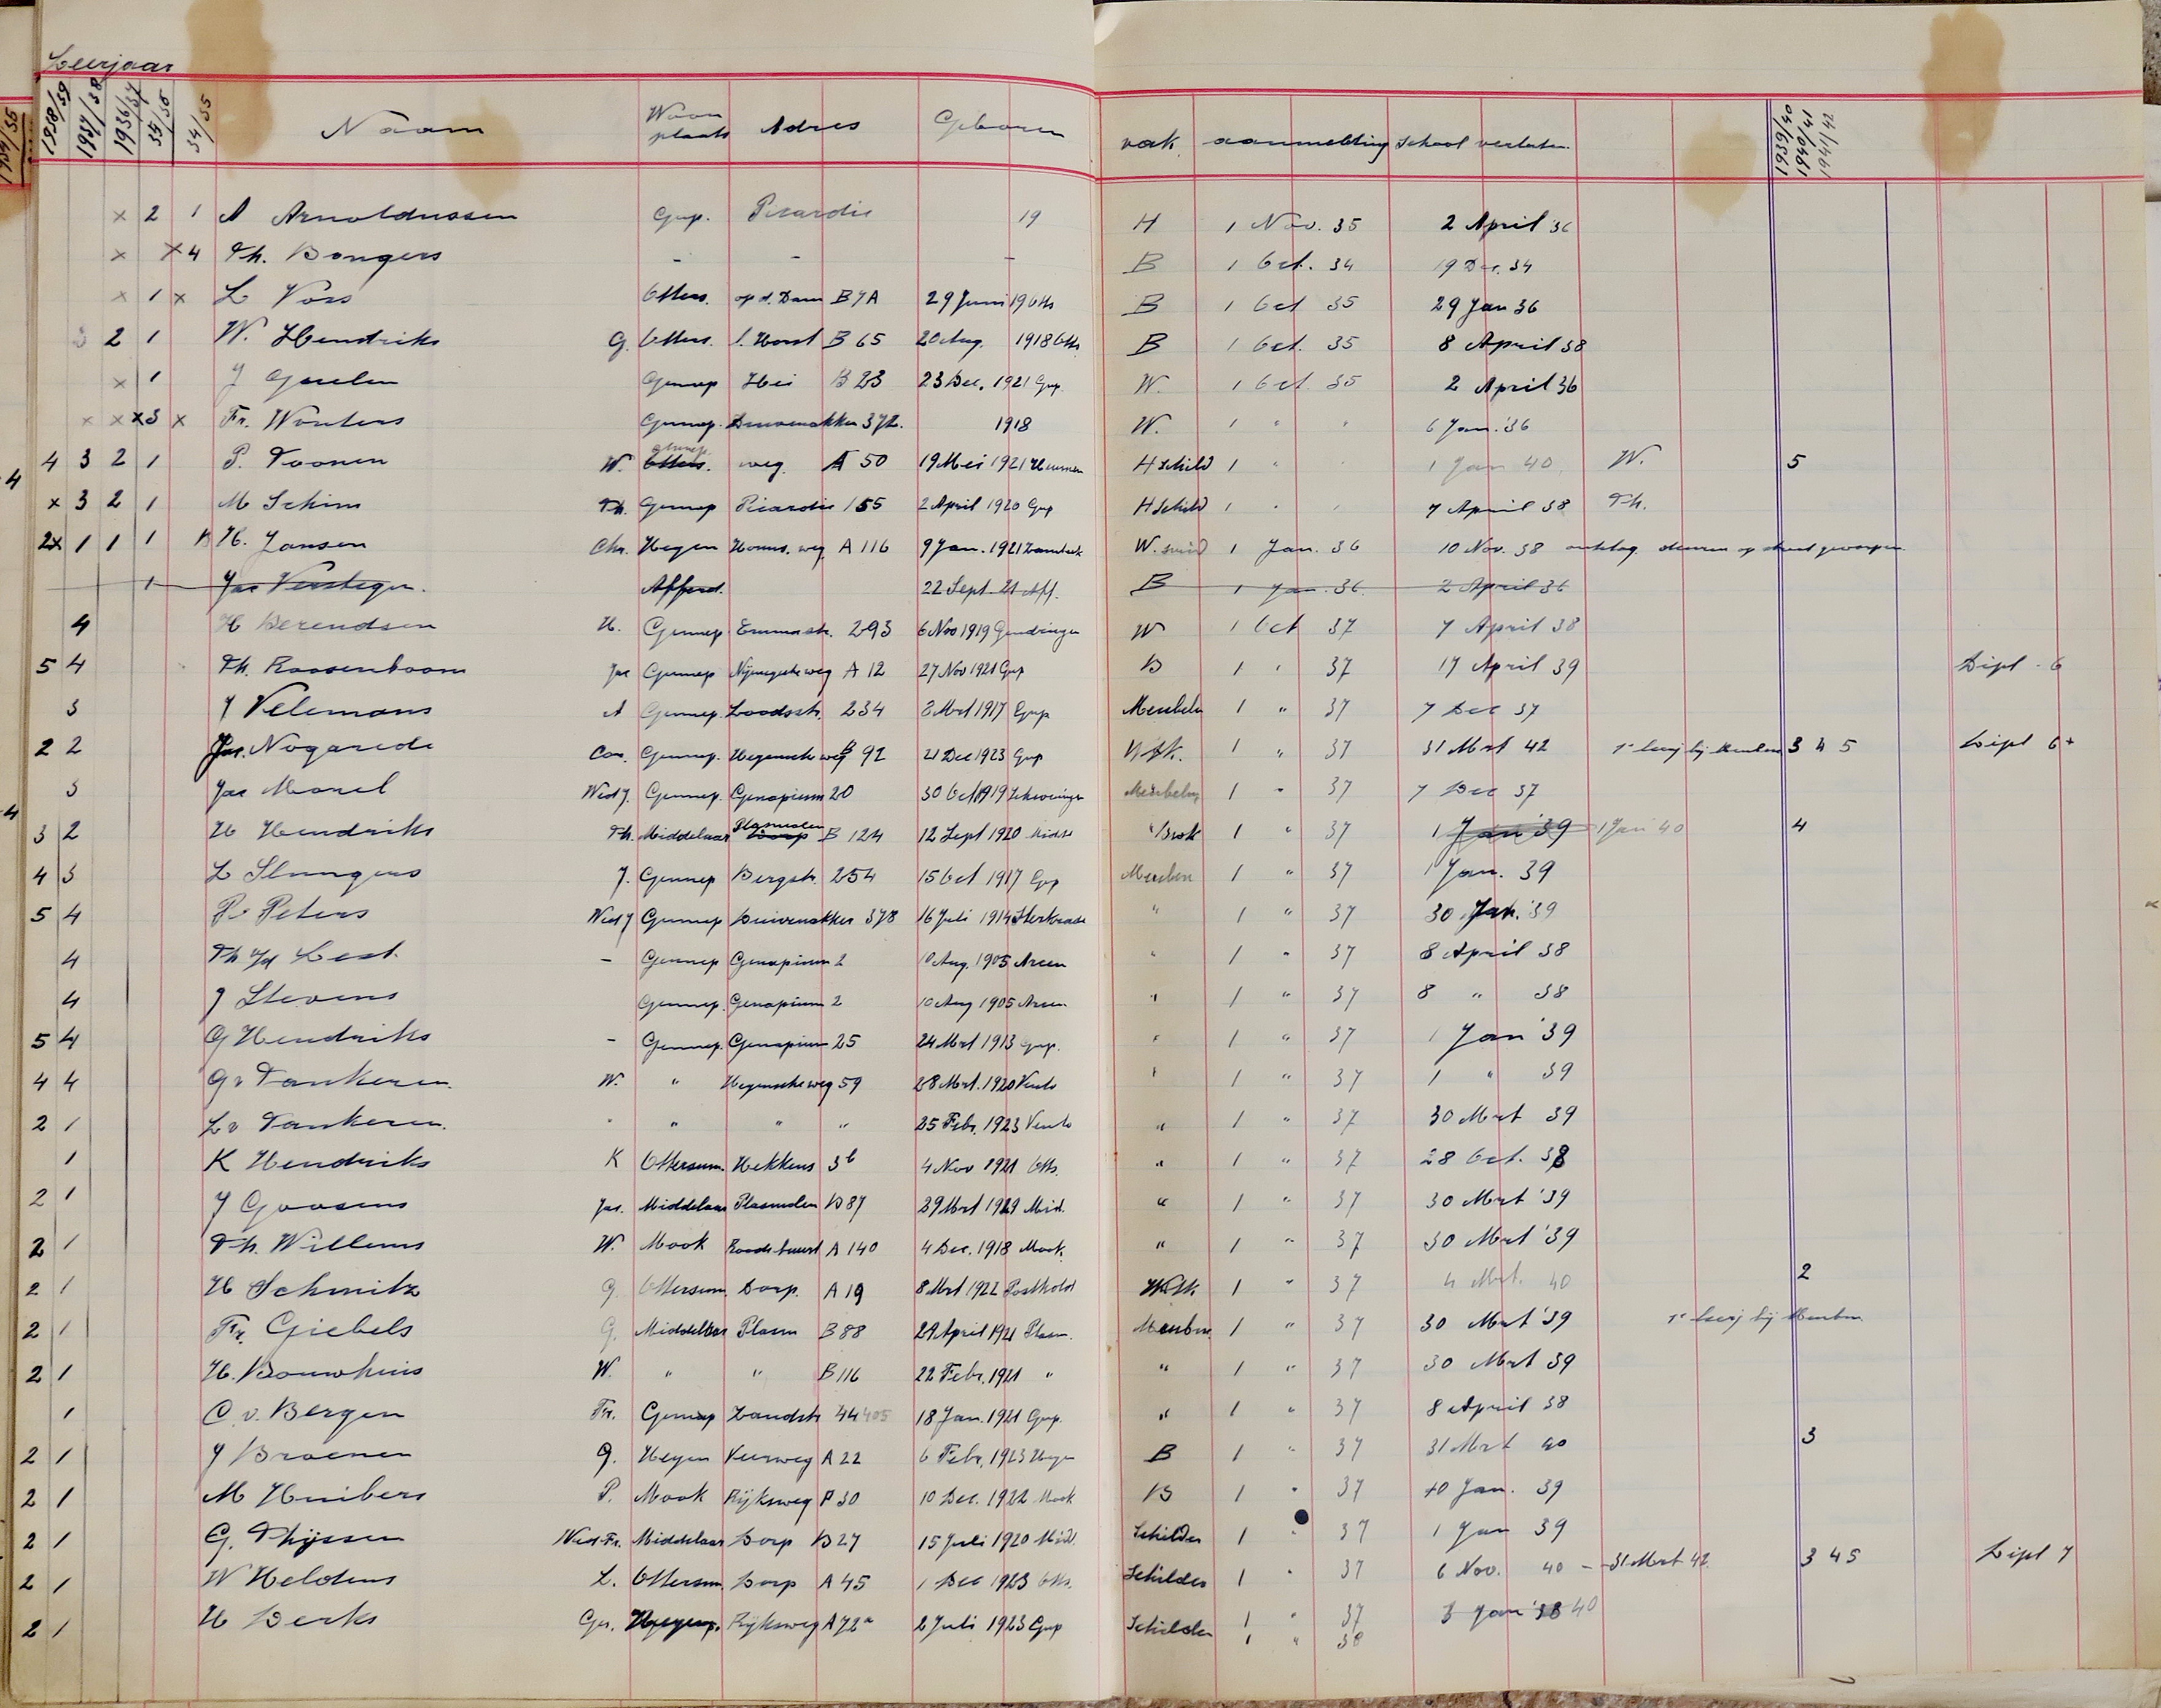 Leerjaar
1938/39 1937/38 1936/37 35/36 34/35 Naam Woon plaats Adres Geboren vak aanmelding School verlaten. 1939/40 1940/41 1941/42
x 2 1 A Arnoldussen Gnp. Picardie 19 H 1 Nov. 35 2 April 36
x x 4 Th. Bongers - - - B 1 Oct. 34 19 Dec. 34
x 1 x L Voss Otters. op d. Dam B 7A 29 Juni 19 Otts B 1 Oct 35 29 Jan 36
3 2 1 W. Hendriks G. Otters. v. Horst B 65 20 Aug. 1918 Otts B 1 Oct. 35 8 April 38
x 1 J Gerelen Gennep Hei B 23 23 Dec. 1921 Gnp. W. 1 Oct. 35 2 April 36
x x x 3 x Fr. Wouters Gennep. 372. 1918 W. 1 " " 6 Jan. '36
4 3 2 1 P. Toonen W. Otters. Gennep. weg. A 50 19 Mei 1921 Heumen H Schild 1 " " 1 Jan 40. W. 5
x 3 2 1 M Schim Th. Gennep Picardie 155 2 April 1920 Gnp H Schild 1 " " 7 April 38 Th.
2x 1 1 1 H. Jansen Chr. Heyen Homs. weg A 116 9 Jan. 1921 W. smid 1 Jan. 36 10 Nov. 38 ontslag deuren op straat geworpen.
1 Jac Verstegen. Afferd. 22 Sept 21 Aff. B 1 Jan. 36. 2 April 36
4 H Berendsen H. Gennep. Emmastr. 293 6 Nov 1919 Gendringen W 1 Oct 37 7 April 38
5 4 Th. Roosenboom Jac Gennep Nijmegsche weg A 12 27 Nov 1921 Gnp B 1 " 37 17 April 39 Dipl - 6
3 J Velemans A Gennep. Loodsstr. 234 3 Mrt 1917 Gnp Meubelm 1 " 37 7 Dec 37
2 2 Jac. Nogarede Cor. Gennep. Heyensche weg 92 21 Dec 1923 Gnp 1 " 37 31 Mrt 42 1e leerj bij Meubelm 3 4 5 Dipl 6 +
3 Jac Morel Wed J. Gennep. Genapium 20 30 Oct 1919 Meubelm 1 " 37 7 Dec 37
3 2 H Hendriks Th. Middelaar Plasmolen Dorp B 124 12 Sept 1920 Midd Brok 1 " 37 1 Jan '39 1 Jan 40 4
4 3 L Slungers J. Gennep Bergstr. 254 15 Oct 1917 Gnp Meubm 1 " 37 1 Jan. 39
5 4 P. Peters Wed J Gennep 378 16 Juli 1914 Sterkrade " 1 " 37 30 Jan. '39
4 Th v/d Lest. - Gennep Genapium 2 10 Aug. 1905 Arcen " 1 " 37 8 April 38
4 J Stevens Gennep. Genapium 2 10 Aug 1905 Arcen " 1 " 37 8 " 38
5 4 G Hendriks - Gennep. Genapium 25 24 Mrt 1913 Gnp. " 1 " 37 1 Jan '39
4 4 G v Tankeren. W. " Heyensche weg 59 28 Mrt. 1920 Venlo " 1 " 37 1 " 39
2 1 L v Tankeren. " " " " 25 Febr. 1923 Venlo " 1 " 37 30 Mrt 39
1 K Hendriks K Ottersum. Hekkens 3b 4 Nov 1921 Otts. " 1 " 37 28 Oct. 38
2 1 J Goosens Jac. Middelaar Plasmolen B 87 29 Mrt 1921 Mid. " 1 " 37 30 Mrt '39
2 1 Th. Willems W. Mook A 140 4 Dec. 1918 Mook. " 1 " 37 30 Mrt '39
2 1 H Schmitz G. Ottersum. Dorp. A 19 8 Mrt 1922 1 " 37 4 Mrt. 40 2
2 1 Fr. Giebels G. Middelaar Plasm B 88 29 April 1921 Plasm. Meubm 1 " 37 30 Mrt '39 1e leerj bij Meubm
2 1 H. Bouwhuis W. " " B 116 22 Febr. 1921 " " 1 " 37 30 Mrt 39
1 C. v. Bergen Fr. Gennep Zandstr 44 405 18 Jan. 1921 Gnp. " 1 " 37 8 April 38
2 1 J Broenen G. Heyen Veerweg A 22 6 Febr. 1923 Heyen B 1 " 37 31 Mrt 40 3
2 1 M Huibers P. Mook Rijksweg P 30 10 Dec. 1922 Mook B 1 " 37 10 Jan. 39
2 1 G. Thijssen Wed. Fr. Middelaar Dorp B 27 15 Juli 1920 Midd. Schilder 1 " 37 1 Jan 39
2 1 W Heldens L. Ottersum. Dorp A 45 1 Dec 1923 Otts. Schilder 1 " 37 6 Nov. 40 - 31 Mrt 42 3 4 5 Dipl 7
2 1 H Derks Ger. Rijksweg A 72a 2 Juli 1923 Gnp Schilder 1 " 37 3 Jan '38 40
1 " 38